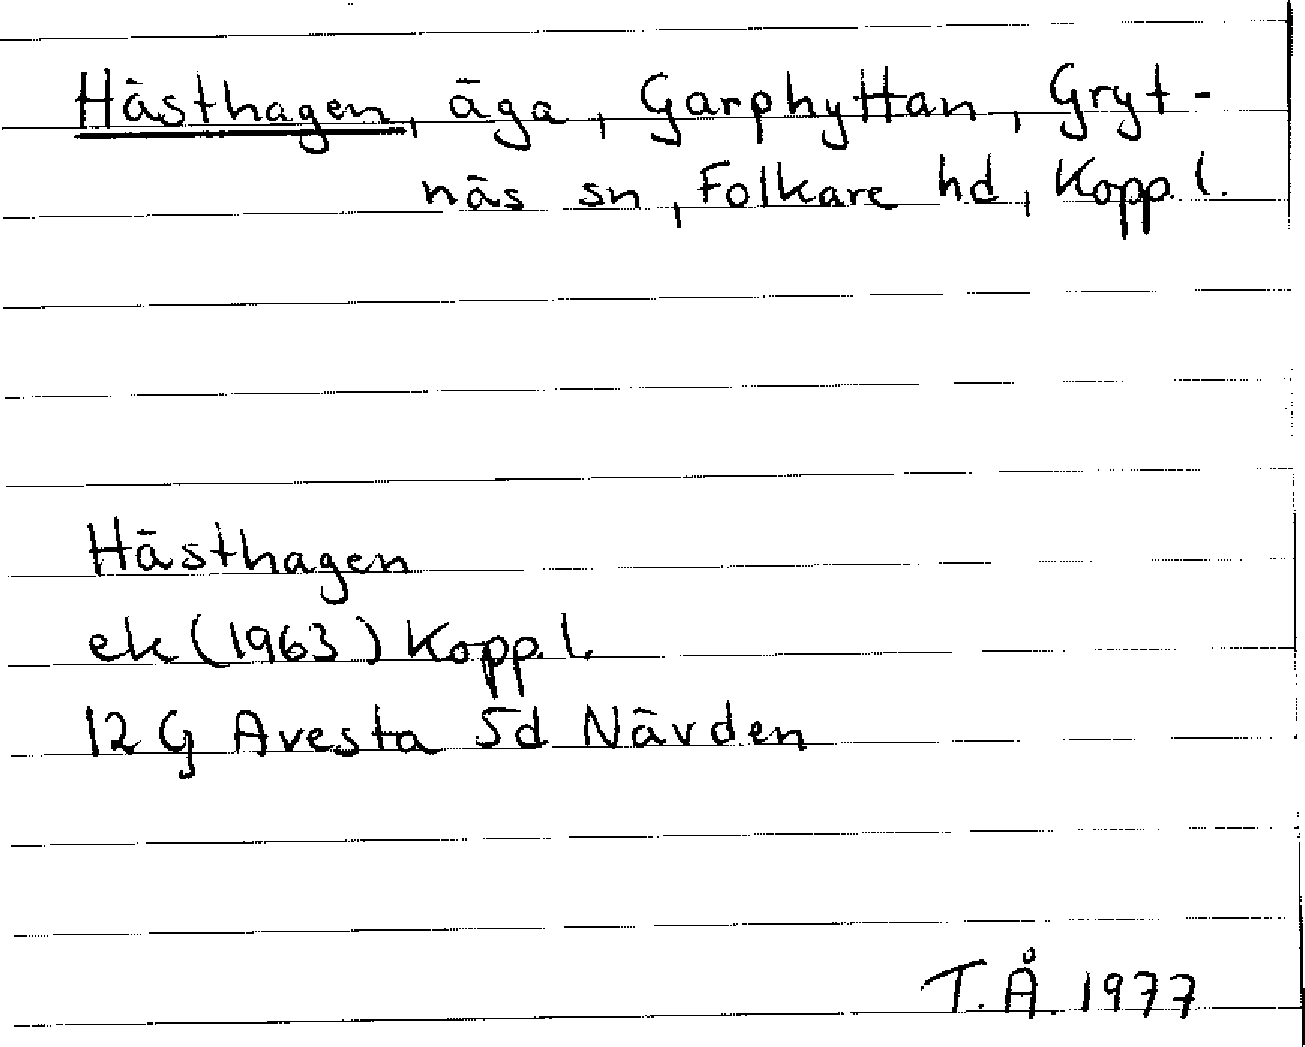 Hästhagen, äga, Garphyttan, Gryt-
näs sn, Folkare hd, Kopp. l.
Hästhagen
ek (1963) Kopp. l.
12 G Avesta 5d Nävden
T.Å. 1977